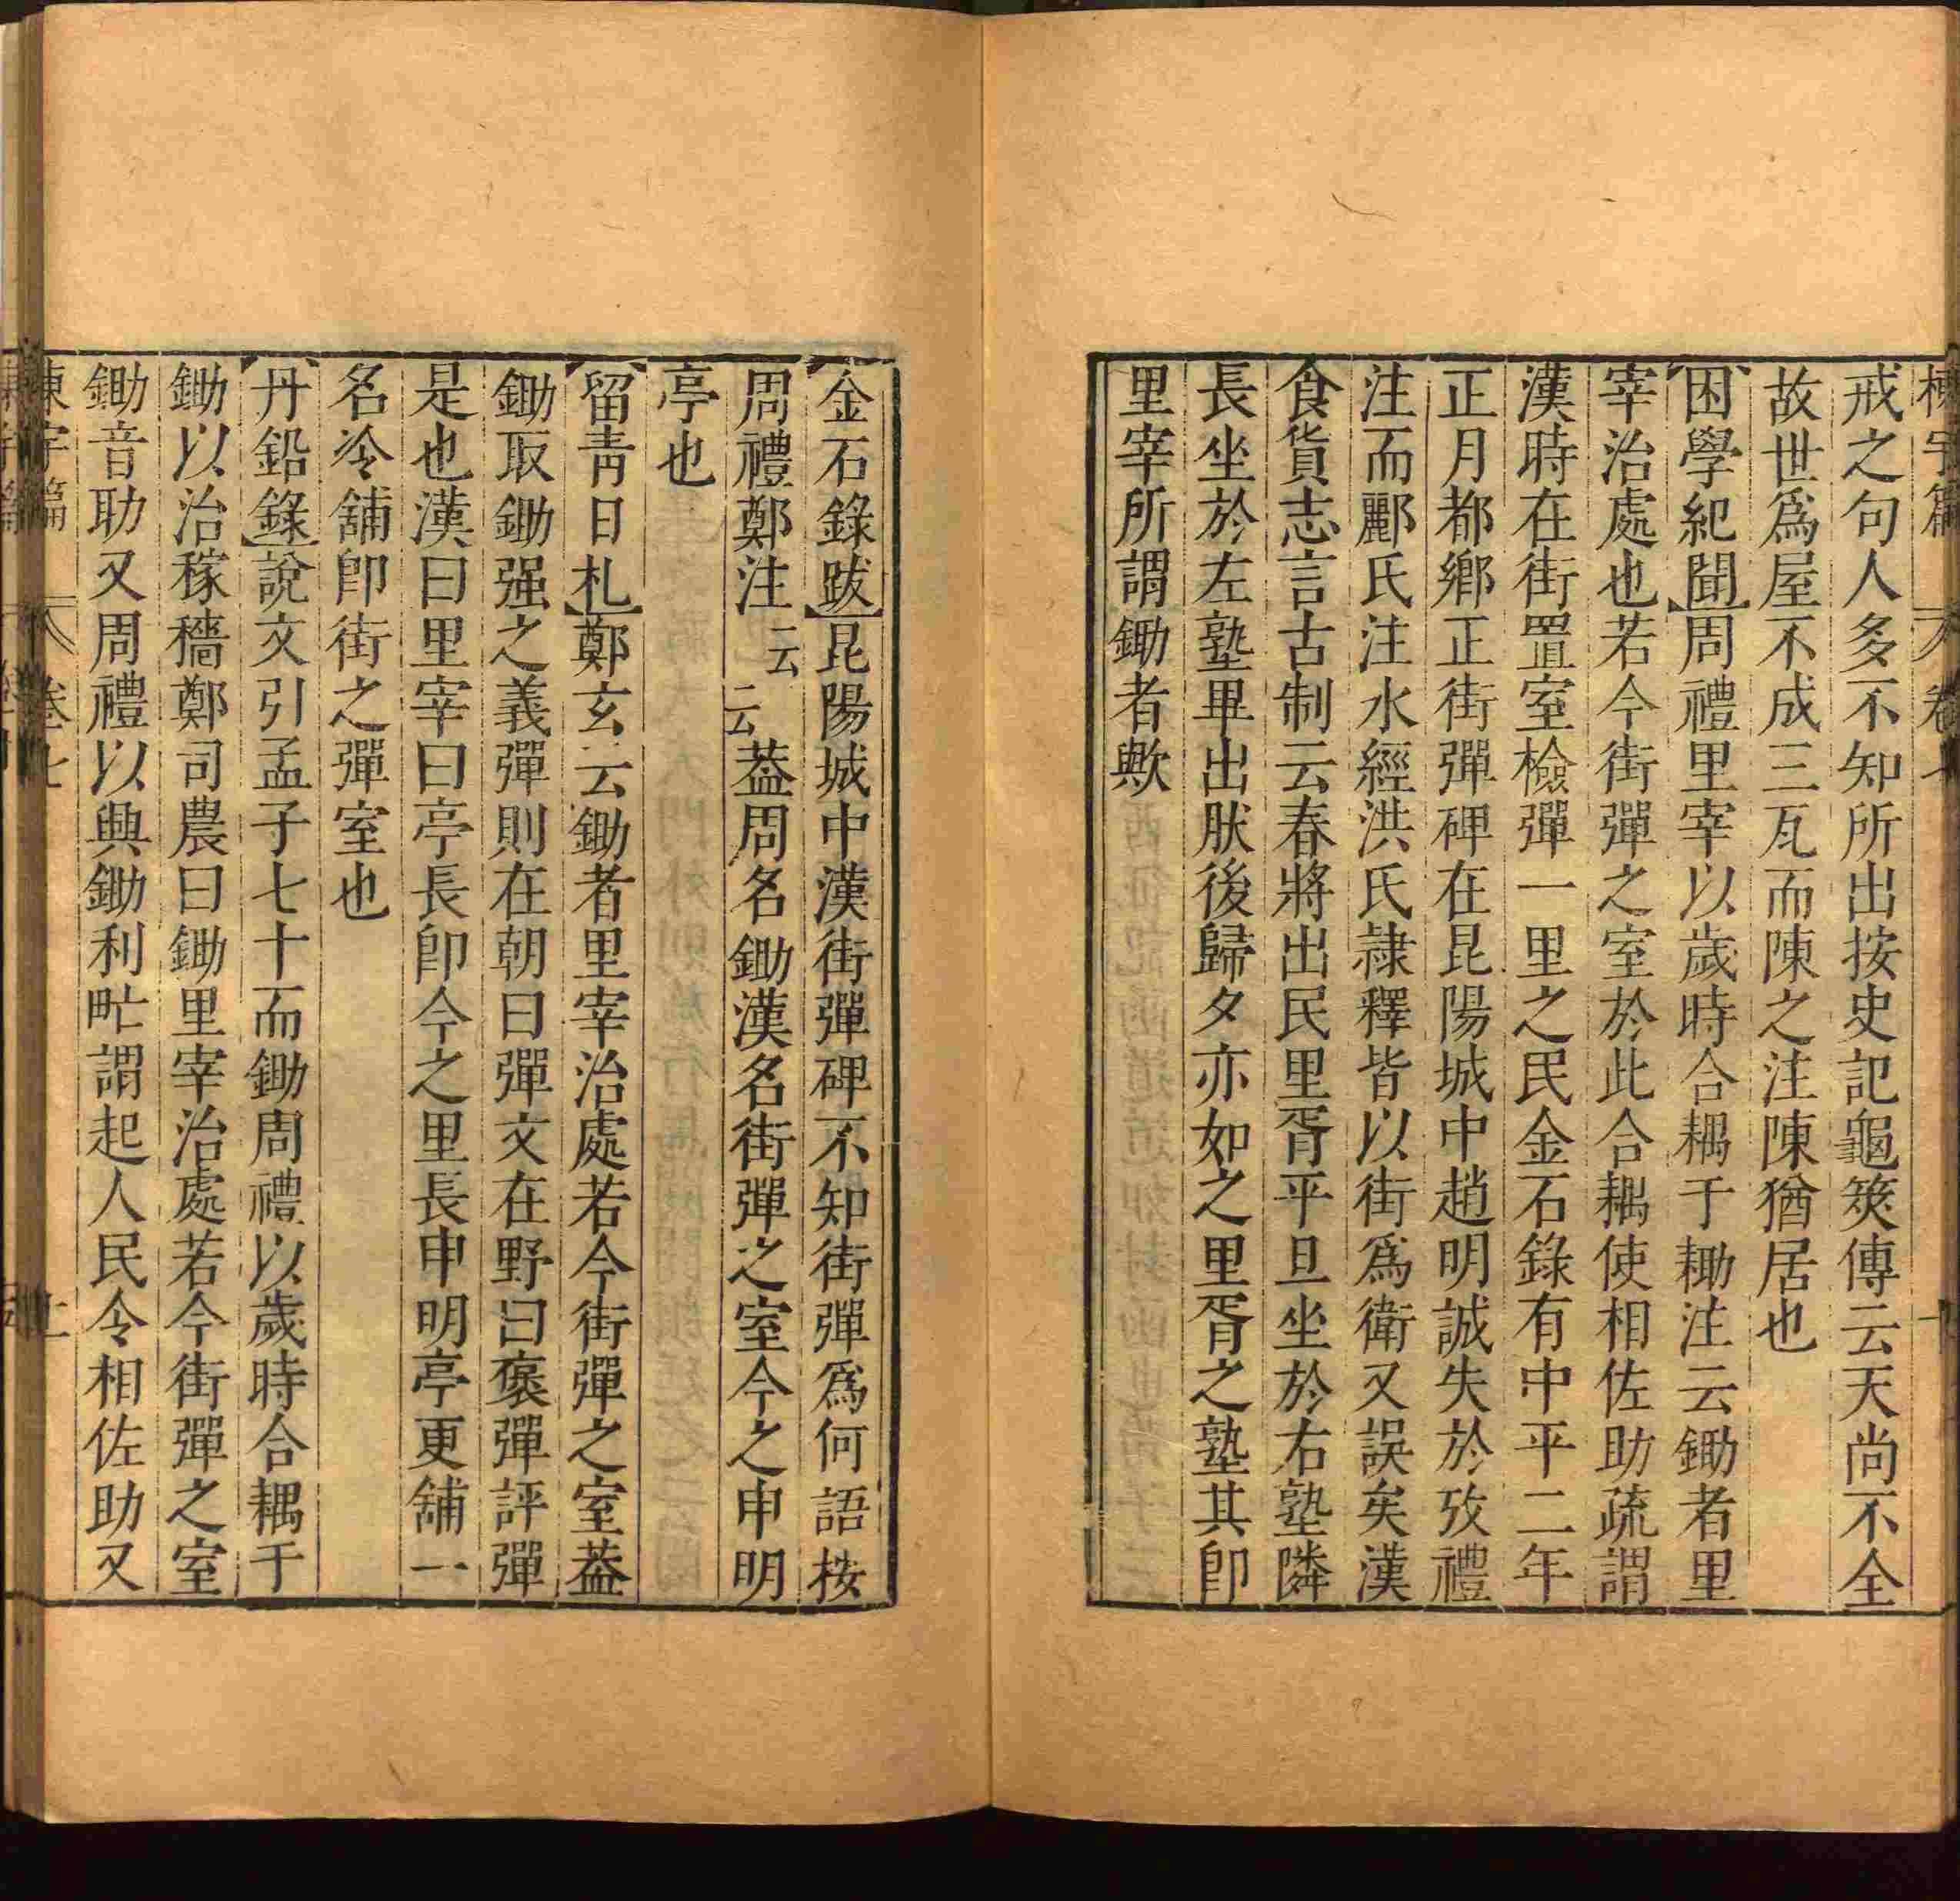 戒之句人多不知所出按史記龜筴傳云天尚不全
故世爲屋不成三瓦而陳之注陳猶居也
困學紀聞周禮里宰以歲時合耦于耡注云鋤者里
宰治處也若今街彈之室於此合耦使相佐助疏謂
漢時在街置室檢彈一里之民金石錄有中平二年
正月都鄉正街彈碑在昆陽城中趙明誠失於攷禮
注而酈氏注水經洪氏隷釋皆以街爲衛又誤矣漢
食貨志言古制云春將出民里胥平旦坐於右塾隣
長坐於左塾畢出肰後歸夕亦如之里胥之塾其卽
里宰所謂鋤者歟
金石錄跋昆陽城中漢街彈碑不知街彈爲何語按
周禮鄭注云云葢周名鋤漢名街彈之室今之申明
亭也
留青日札鄭玄云鋤者里宰治處若今街彈之室葢
鋤取鋤强之義彈則在朝曰彈文在野曰褒彈評彈
是也漢曰里宰曰亭長卽今之里長申明亭更舖一
名冷舖卽街之彈室也
丹鉛錄說文引孟子七十而鋤周禮以歲時合耦于
鋤以治稼穡鄭司農曰鋤里宰治處若今街彈之室
鋤音助又周禮以興鋤利甿謂起人民令相佐助又